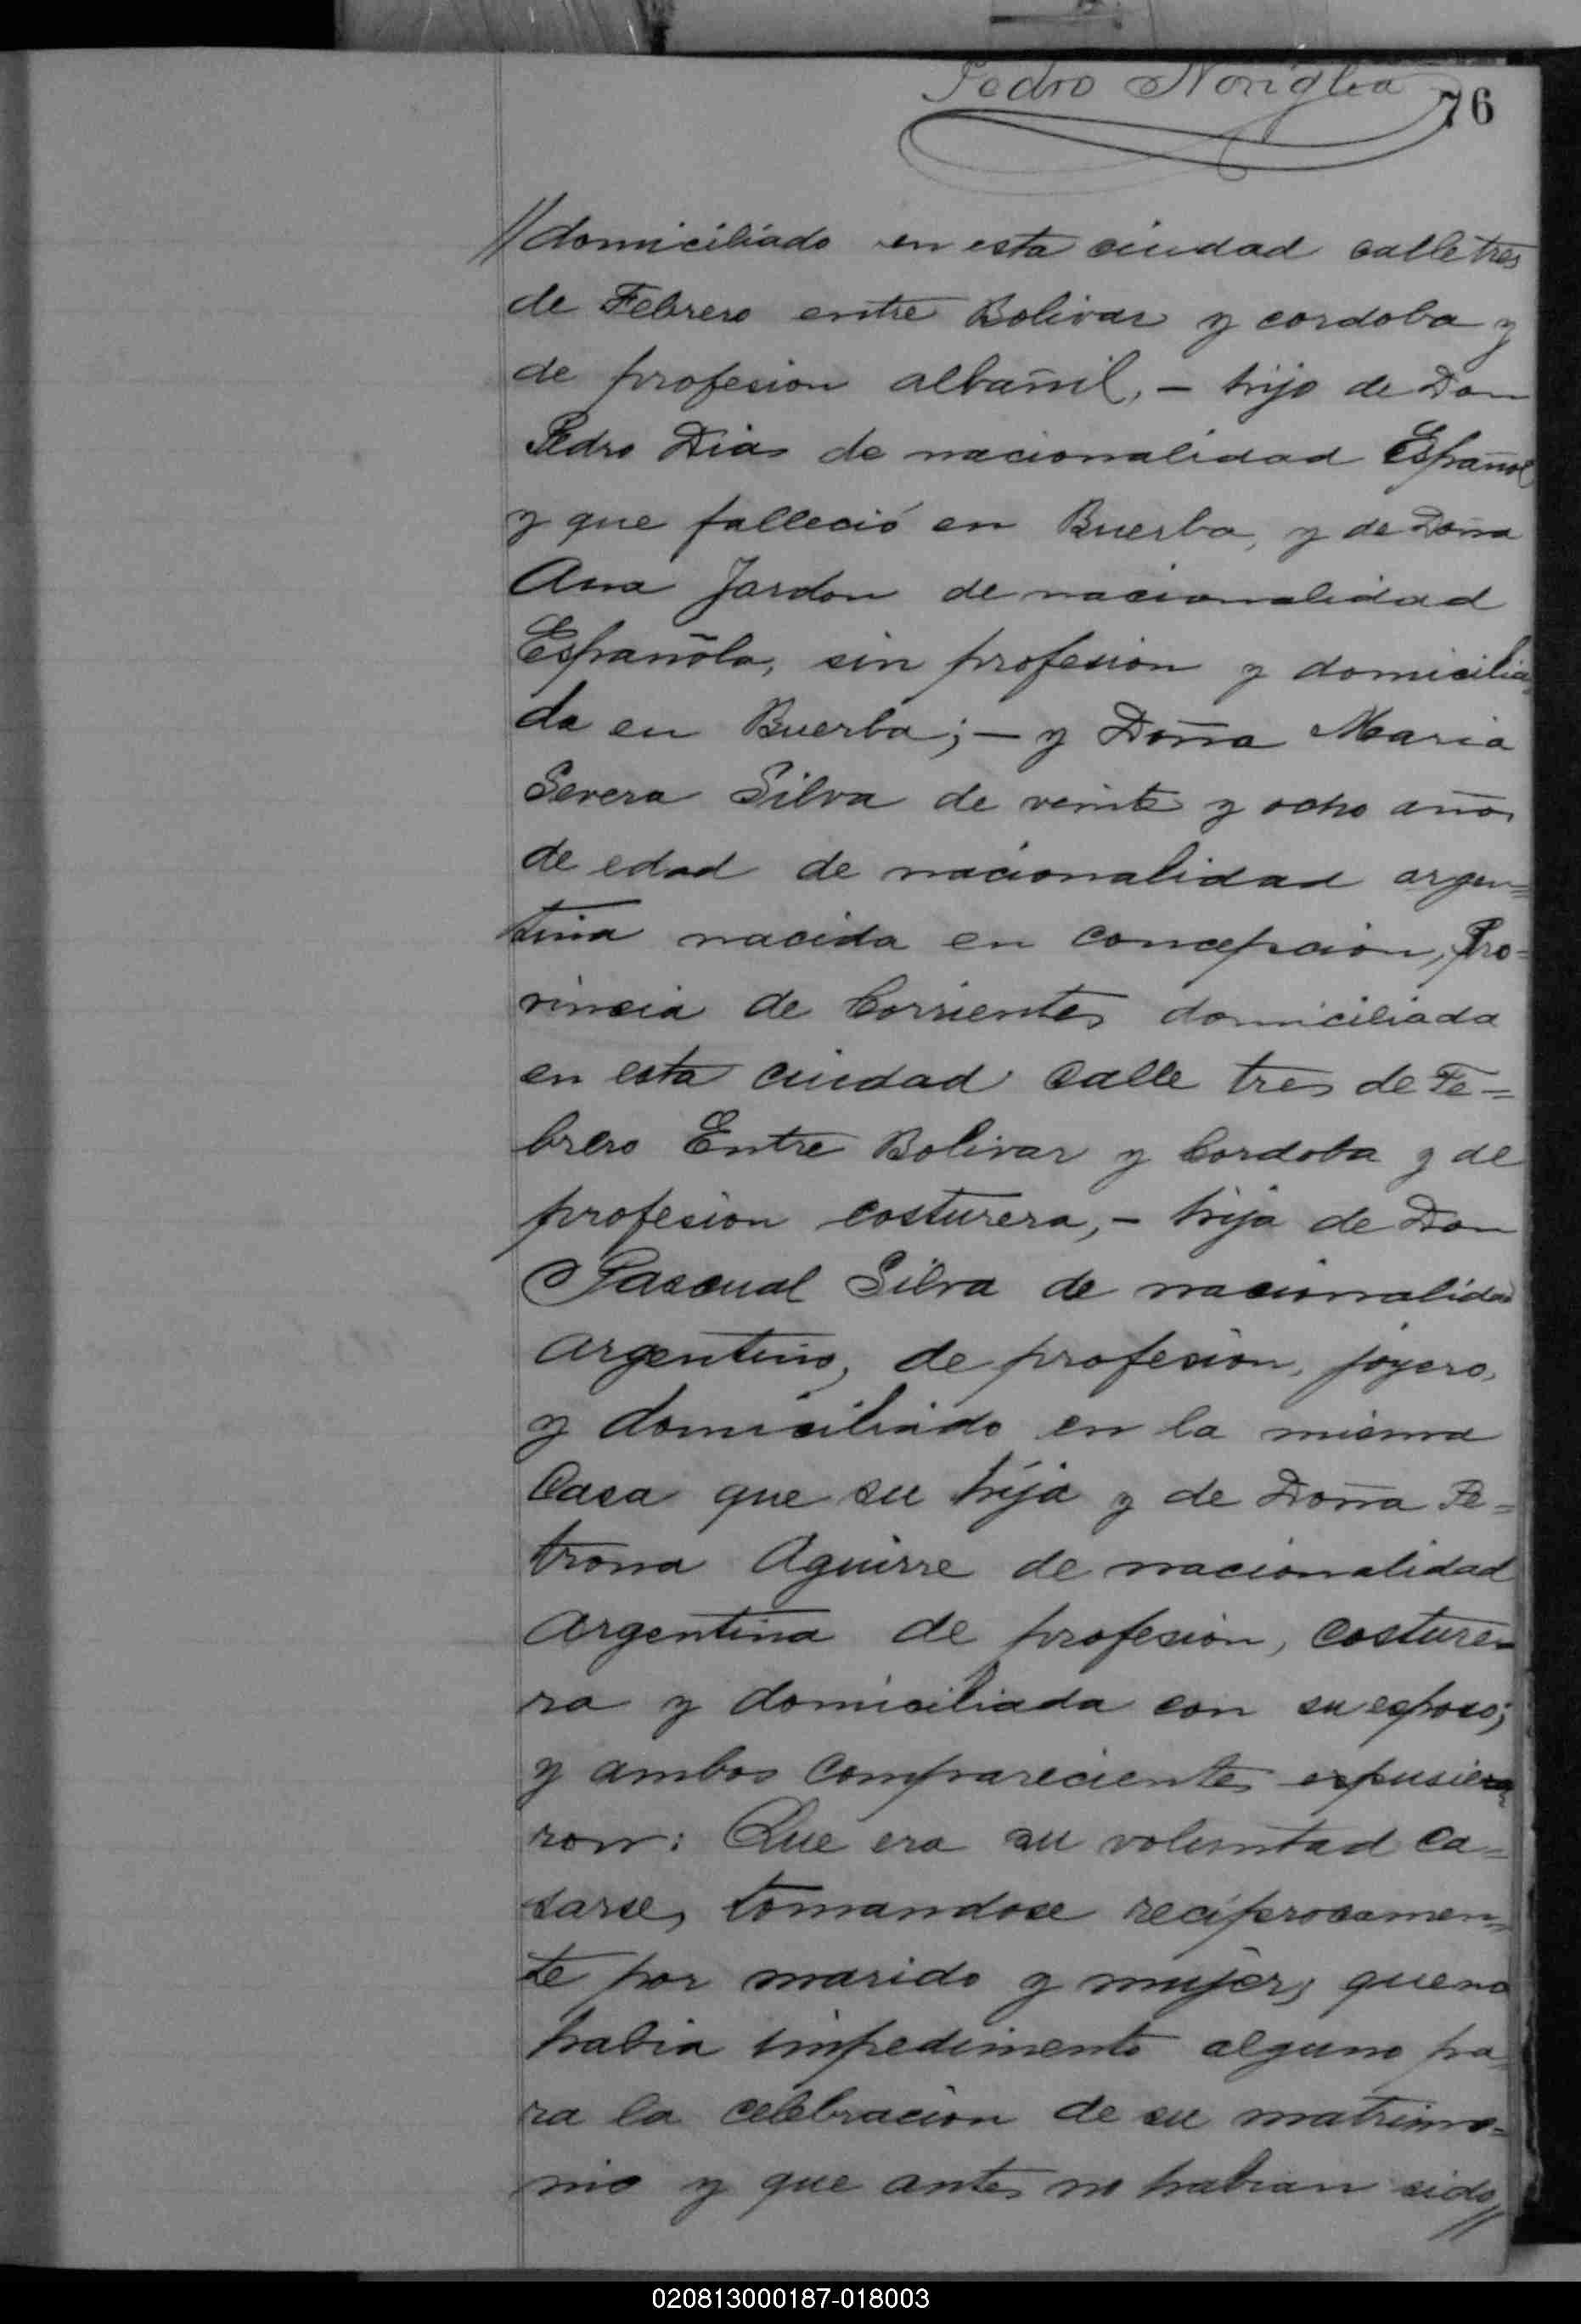 Pedro Noriglia
76
// domiciliado en esta ciudad calle tres
de Febrero entre Bolivar y cordoba y
de profesion albañil, – hijo de Don
Pedro Dias de nacionalidad Español
y que falleció en Buerba, y de Doña
Ana Jardon de nacionalidad
Española, sin profesion y domicilia
da en Buerba; – y Doña Maria
Severa Silva de veinte y ocho años
de edad de nacionalidad argen=
tina nacida en concepcion, Pro=
vincia de Corrientes domiciliada
en esta ciudad calle tres de Fe=
brero Entre Bolivar y Cordoba y de
profesion costurera, – hija de Don
Pascual Silva de nacionalidad
argentino, de profesion, joyero,
y domiciliado en la misma
Casa que su hija y de Doña Pe=
trona Aguirre de nacionalidad
Argentina de profesion, costure=
ra y domiciliada con su esposo;
y ambos comparecientes expusie
ron: Que era su voluntad ca=
sarse, tomandose reciprocamen=
te por marido y mujer, que no
habia impedimento alguno pa
ra la celebracion de su matrimo=
nio y que antes no habian sido //
020813000187-018003